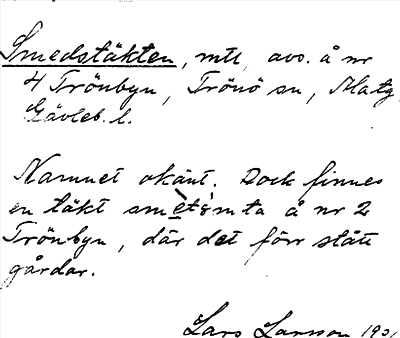 Smedstäkten, mtl, avs. å nr
4 Trönbyn, Trönö sn,
Gävleb. l.
Namnet okänt. Dock finnes
en täkt å nr 2
Trönbyn, där det förr stått
gårdar.
Lars Larsson